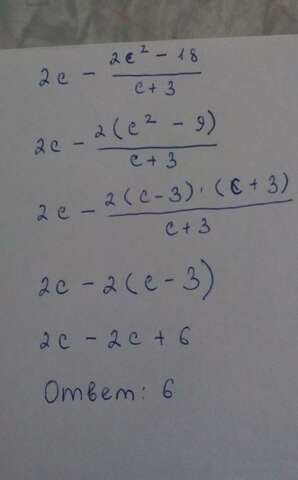 2c - (2c² - 18)/(c + 3)
2c - 2(c² - 9)/(c + 3)
2c - 2(c-3)·(c+3)/(c+3)
2c - 2(c - 3)
2c - 2c + 6
Ответ: 6